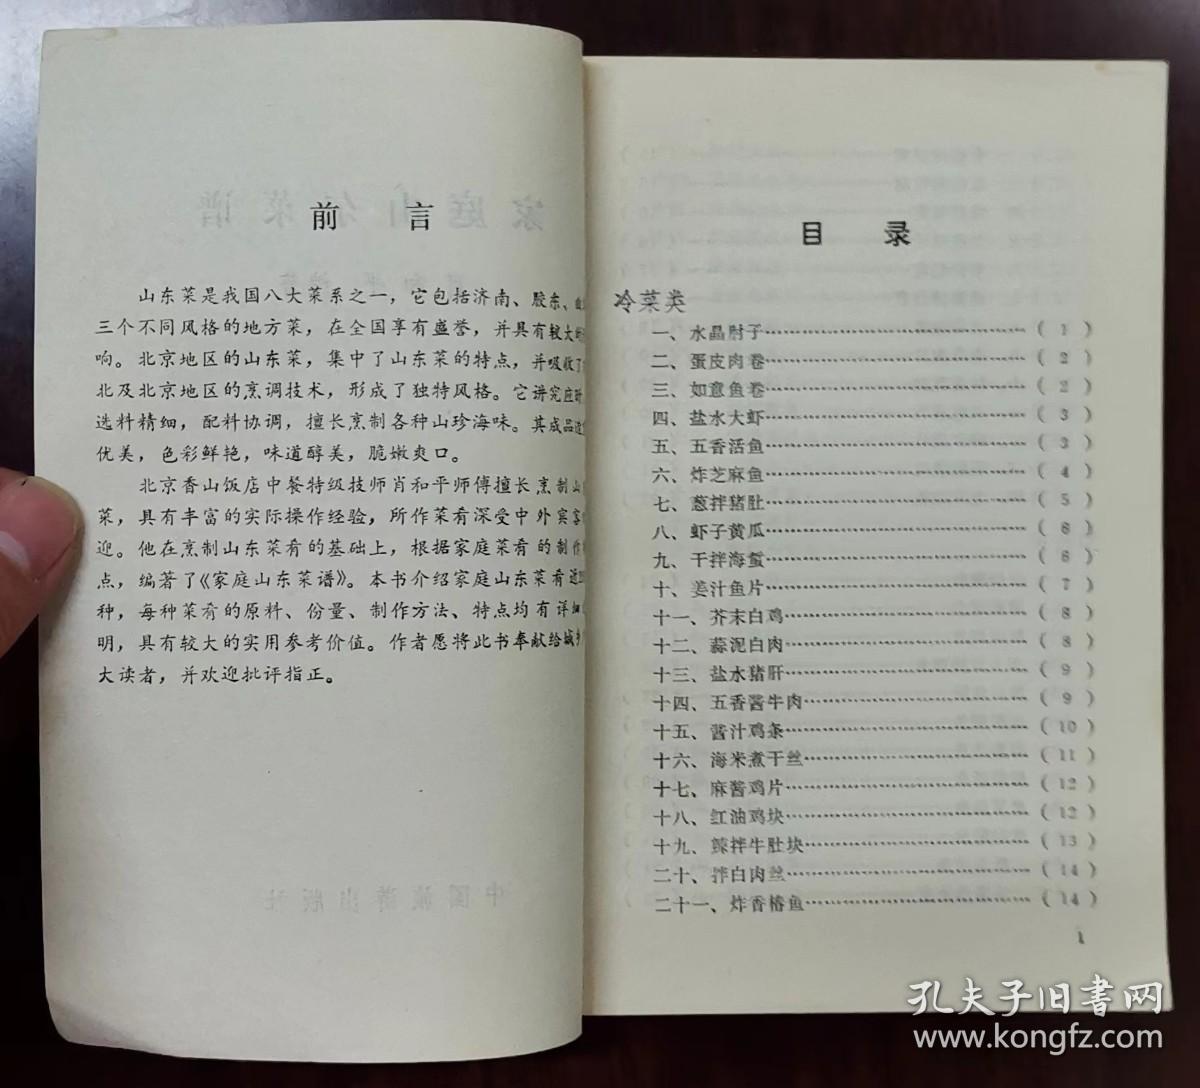 前 言
山东菜是我国八大菜系之一，它包括济南、胶东、
三个不同风格的地方菜，在全国享有盛誉，并具有较大
响。北京地区的山东菜，集中了山东菜的特点，并吸收了
北及北京地区的烹调技术，形成了独特风格。它讲究应时
选料精细，配料协调，擅长烹制各种山珍海味。其成品造
优美，色彩鲜艳，味道醇美，脆嫩爽口。
北京香山饭店中餐特级技师肖和平师傅擅长烹制山
菜，具有丰富的实际操作经验，所作菜肴深受中外宾客
迎。他在烹制山东菜肴的基础上，根据家庭菜肴的制作
点，编著了《家庭山东菜谱》。本书介绍家庭山东菜肴近
种，每种菜肴的原料、份量、制作方法、特点均有详细
明，具有较大的实用参考价值。作者愿将此书奉献给城乡
大读者，并欢迎批评指正。
目 录
冷菜类
一、水晶肘子……（1）
二、蛋皮肉卷……（2）
三、如意鱼卷……（2）
四、盐水大虾……（3）
五、五香活鱼……（3）
六、炸芝麻鱼……（4）
七、葱拌猪肚……（5）
八、虾子黄瓜……（6）
九、干拌海蜇……（6）
十、姜汁鱼片……（7）
十一、芥末白鸡……（8）
十二、蒜泥白肉……（8）
十三、盐水猪肝……（9）
十四、五香酱牛肉……（9）
十五、酱汁鸡条……（10）
十六、海米煮干丝……（11）
十七、麻酱鸡片……（12）
十八、红油鸡块……（12）
十九、辣拌牛肚块……（13）
二十、拌白肉丝……（14）
二十一、炸香椿鱼……（14）
1
孔夫子旧书网
www.kongfz.com